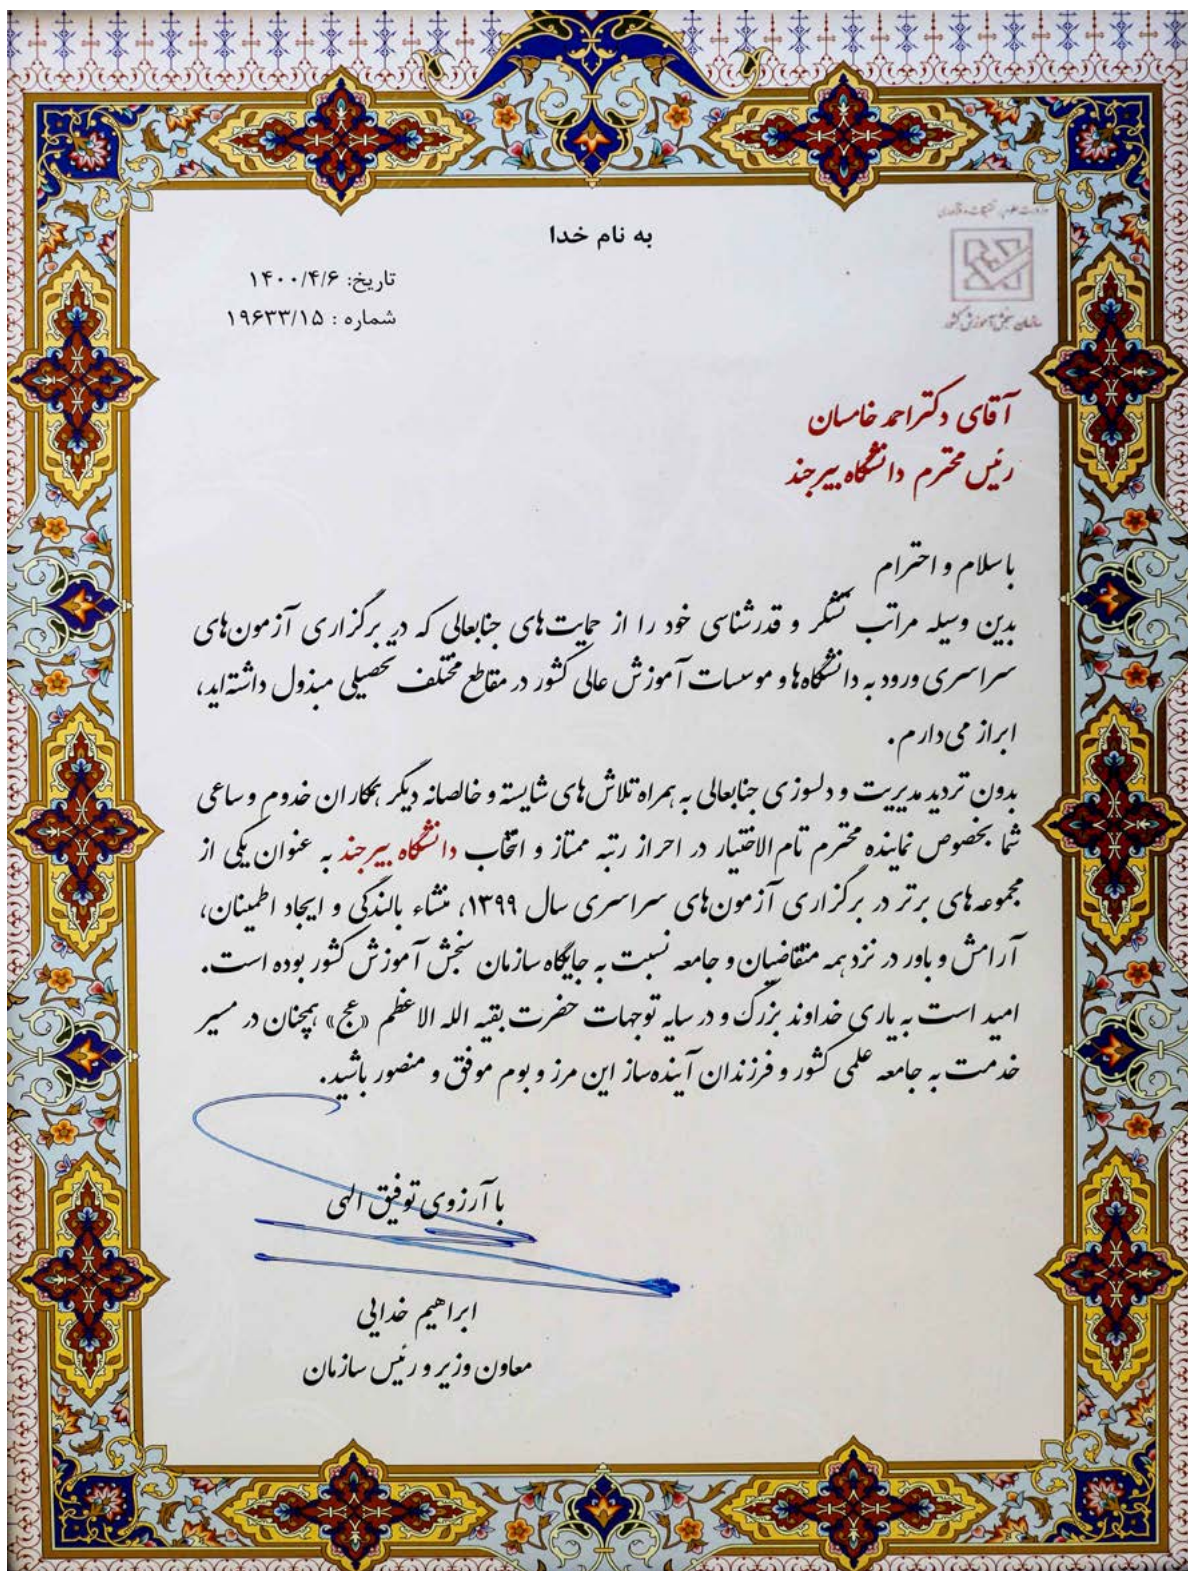 به نام خدا
وزارت علوم، تحقیقات و فناوری
سازمان سنجش آموزش کشور
تاریخ: ۱۴۰۰/۴/۶
شماره : ۱۹۶۳۳/۱۵
آقای دکتر احمد خامسان
رئیس محترم دانشگاه بیرجند
با سلام و احترام
بدین وسیله مراتب تشکر و قدرشناسی خود را از حمایت‌های جنابعالی که در برگزاری آزمون‌های
سراسری ورود به دانشگاه‌ها و موسسات آموزش عالی کشور در مقاطع مختلف تحصیلی مبذول داشته‌اید،
ابراز می‌دارم.
بدون تردید مدیریت و دلسوزی جنابعالی به همراه تلاش‌های شایسته و خالصانه دیگر همکاران خدوم و ساعی
شما بخصوص نماینده محترم تام الاختیار در احراز رتبه ممتاز و انتخاب دانشگاه بیرجند به عنوان یکی از
مجموعه‌های برتر در برگزاری آزمون‌های سراسری سال ۱۳۹۹، منشاء بالندگی و ایجاد اطمینان،
آرامش و باور در نزد همه متقاضیان و جامعه نسبت به جایگاه سازمان سنجش آموزش کشور بوده است.
امید است به یاری خداوند بزرگ و در سایه توجهات حضرت بقیه الله الاعظم «عج» همچنان در مسیر
خدمت به جامعه علمی کشور و فرزندان آینده‌ساز این مرز و بوم موفق و منصور باشید.
با آرزوی توفیق الهی
ابراهیم خدایی
معاون وزیر و رئیس سازمان